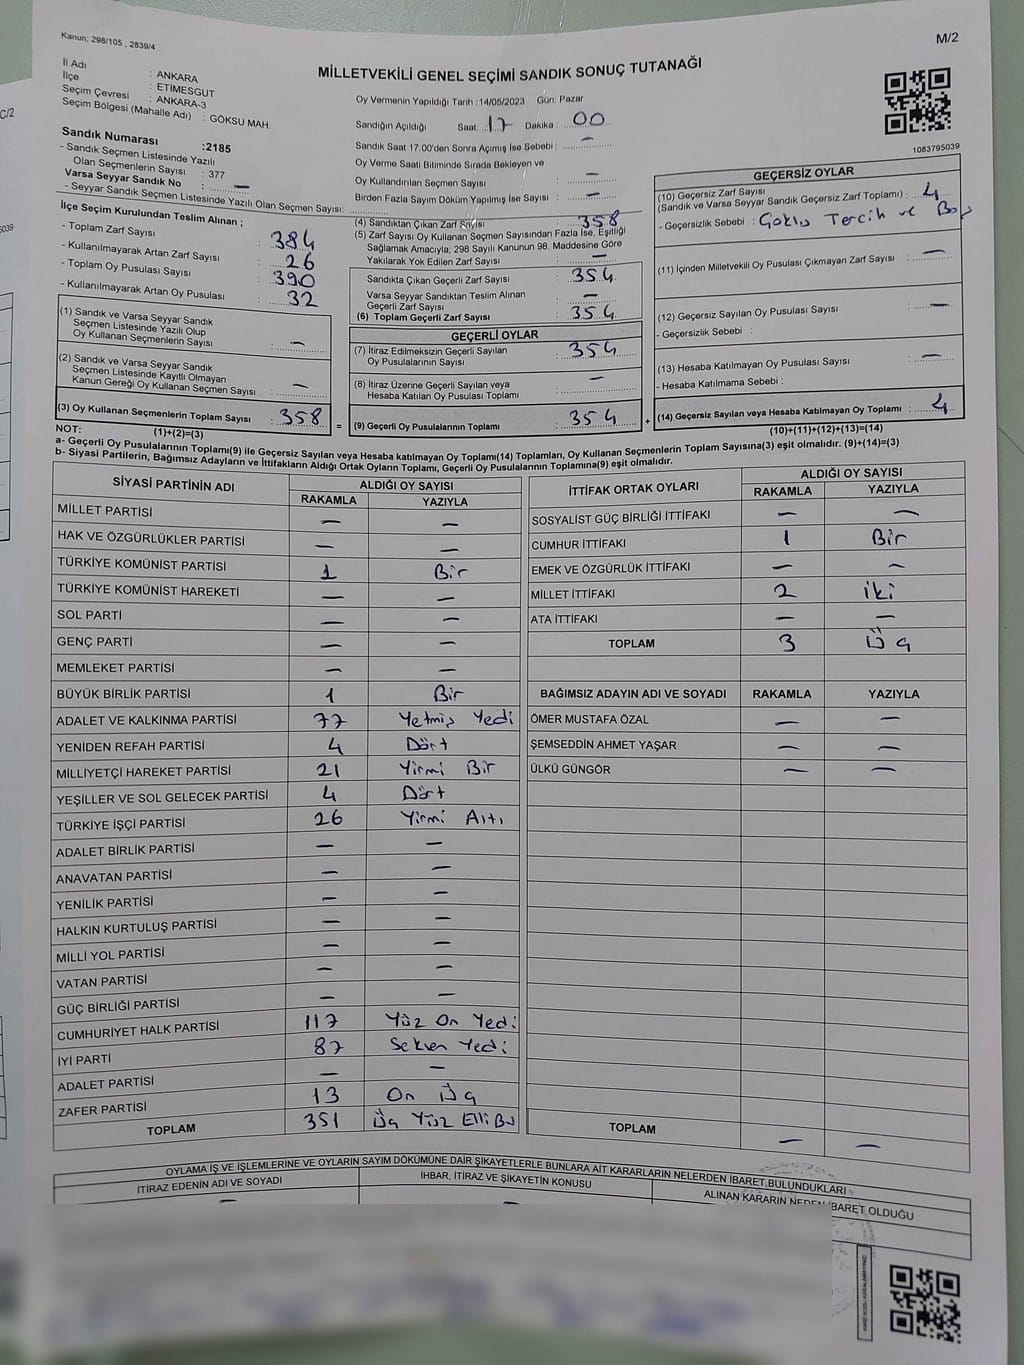 Kanun; 298/105 , 2839/4
M/2
MİLLETVEKİLİ GENEL SEÇİMİ SANDIK SONUÇ TUTANAĞI
İl Adı : ANKARA
İlçe : ETİMESGUT
Seçim Çevresi : ANKARA-3
Seçim Bölgesi (Mahalle Adı) : GÖKSU MAH.
Oy Vermenin Yapıldığı Tarih : 14/05/2023 Gün: Pazar
Sandığın Açıldığı Saat: 17 Dakika : 00
Sandık Saat 17:00'den Sonra Açımış İse Sebebi : —
Oy Verme Saati Bitiminde Sırada Bekleyen ve
Oy Kullandırılan Seçmen Sayısı —
Birden Fazla Sayım Döküm Yapılmış İse Sayısı : —
1083795039
Sandık Numarası :2185
- Sandık Seçmen Listesinde Yazılı
Olan Seçmenlerin Sayısı : 377
Varsa Seyyar Sandık No : —
- Seyyar Sandık Seçmen Listesinde Yazılı Olan Seçmen Sayısı:
İlçe Seçim Kurulundan Teslim Alınan ;
- Toplam Zarf Sayısı : 384
- Kullanılmayarak Artan Zarf Sayısı : 26
- Toplam Oy Pusulası Sayısı : 390
- Kullanılmayarak Artan Oy Pusulası : 32
(1) Sandık ve Varsa Seyyar Sandık
Seçmen Listesinde Yazılı Olup
Oy Kullanan Seçmenlerin Sayısı : —
(2) Sandık ve Varsa Seyyar Sandık
Seçmen Listesinde Kayıtlı Olmayan
Kanun Gereği Oy Kullanan Seçmen Sayısı : —
(3) Oy Kullanan Seçmenlerin Toplam Sayısı : 358
(1)+(2)=(3)
(4) Sandıktan Çıkan Zarf Sayısı : 358
(5) Zarf Sayısı Oy Kullanan Seçmen Sayısından Fazla İse, Eşitliği
Sağlamak Amacıyla; 298 Sayılı Kanunun 98. Maddesine Göre
Yakılarak Yok Edilen Zarf Sayısı : —
Sandıkta Çıkan Geçerli Zarf Sayısı : 354
Varsa Seyyar Sandıktan Teslim Alınan
Geçerli Zarf Sayısı : —
(6) Toplam Geçerli Zarf Sayısı : 354
GEÇERLİ OYLAR
(7) İtiraz Edilmeksizin Geçerli Sayılan
Oy Pusulalarının Sayısı : 354
(8) İtiraz Üzerine Geçerli Sayılan veya
Hesaba Katılan Oy Pusulası Toplamı : —
= (9) Geçerli Oy Pusulalarının Toplamı : 354 +
GEÇERSİZ OYLAR
(10) Geçersiz Zarf Sayısı
(Sandık ve Varsa Seyyar Sandık Geçersiz Zarf Toplamı) : 4
- Geçersizlik Sebebi : Çoklu Tercih ve Boş
(11) İçinden Milletvekili Oy Pusulası Çıkmayan Zarf Sayısı : —
(12) Geçersiz Sayılan Oy Pusulası Sayısı : —
- Geçersizlik Sebebi :
(13) Hesaba Katılmayan Oy Pusulası Sayısı : —
- Hesaba Katılmama Sebebi :
(14) Geçersiz Sayılan veya Hesaba Katılmayan Oy Toplamı : 4
(10)+(11)+(12)+(13)=(14)
NOT:
a- Geçerli Oy Pusulalarının Toplamı(9) ile Geçersiz Sayılan veya Hesaba katılmayan Oy Toplamı(14) Toplamları, Oy Kullanan Seçmenlerin Toplam Sayısına(3) eşit olmalıdır. (9)+(14)=(3)
b- Siyasi Partilerin, Bağımsız Adayların ve İttifakların Aldığı Ortak Oyların Toplamı, Geçerli Oy Pusulalarının Toplamına(9) eşit olmalıdır.
SİYASİ PARTİNİN ADI ALDIĞI OY SAYISI
RAKAMLA YAZIYLA
MİLLET PARTİSİ — —
HAK VE ÖZGÜRLÜKLER PARTİSİ — —
TÜRKİYE KOMÜNİST PARTİSİ 1 Bir
TÜRKİYE KOMÜNİST HAREKETİ — —
SOL PARTİ — —
GENÇ PARTİ — —
MEMLEKET PARTİSİ — —
BÜYÜK BİRLİK PARTİSİ 1 Bir
ADALET VE KALKINMA PARTİSİ 77 Yetmiş Yedi
YENİDEN REFAH PARTİSİ 4 Dört
MİLLİYETÇİ HAREKET PARTİSİ 21 Yirmi Bir
YEŞİLLER VE SOL GELECEK PARTİSİ 4 Dört
TÜRKİYE İŞÇİ PARTİSİ 26 Yirmi Altı
ADALET BİRLİK PARTİSİ — —
ANAVATAN PARTİSİ — —
YENİLİK PARTİSİ — —
HALKIN KURTULUŞ PARTİSİ — —
MİLLİ YOL PARTİSİ — —
VATAN PARTİSİ — —
GÜÇ BİRLİĞİ PARTİSİ — —
CUMHURİYET HALK PARTİSİ 117 Yüz On Yedi
İYİ PARTİ 87 Seksen Yedi
ADALET PARTİSİ — —
ZAFER PARTİSİ 13 On Üç
TOPLAM 351 Üç Yüz Elli Bir
İTTİFAK ORTAK OYLARI ALDIĞI OY SAYISI
RAKAMLA YAZIYLA
SOSYALİST GÜÇ BİRLİĞİ İTTİFAKI — —
CUMHUR İTTİFAKI 1 Bir
EMEK VE ÖZGÜRLÜK İTTİFAKI — —
MİLLET İTTİFAKI 2 iki
ATA İTTİFAKI — —
TOPLAM 3 Üç
BAĞIMSIZ ADAYIN ADI VE SOYADI RAKAMLA YAZIYLA
ÖMER MUSTAFA ÖZAL — —
ŞEMSEDDİN AHMET YAŞAR — —
ÜLKÜ GÜNGÖR — —
TOPLAM — —
OYLAMA İŞ VE İŞLEMLERİNE VE OYLARIN SAYIM DÖKÜMÜNE DAİR ŞİKAYETLERLE BUNLARA AİT KARARLARIN NELERDEN İBARET BULUNDUKLARI
İTİRAZ EDENİN ADI VE SOYADI İHBAR, İTİRAZ VE ŞİKAYETİN KONUSU ALINAN KARARIN NEDEN İBARET OLDUĞU
—